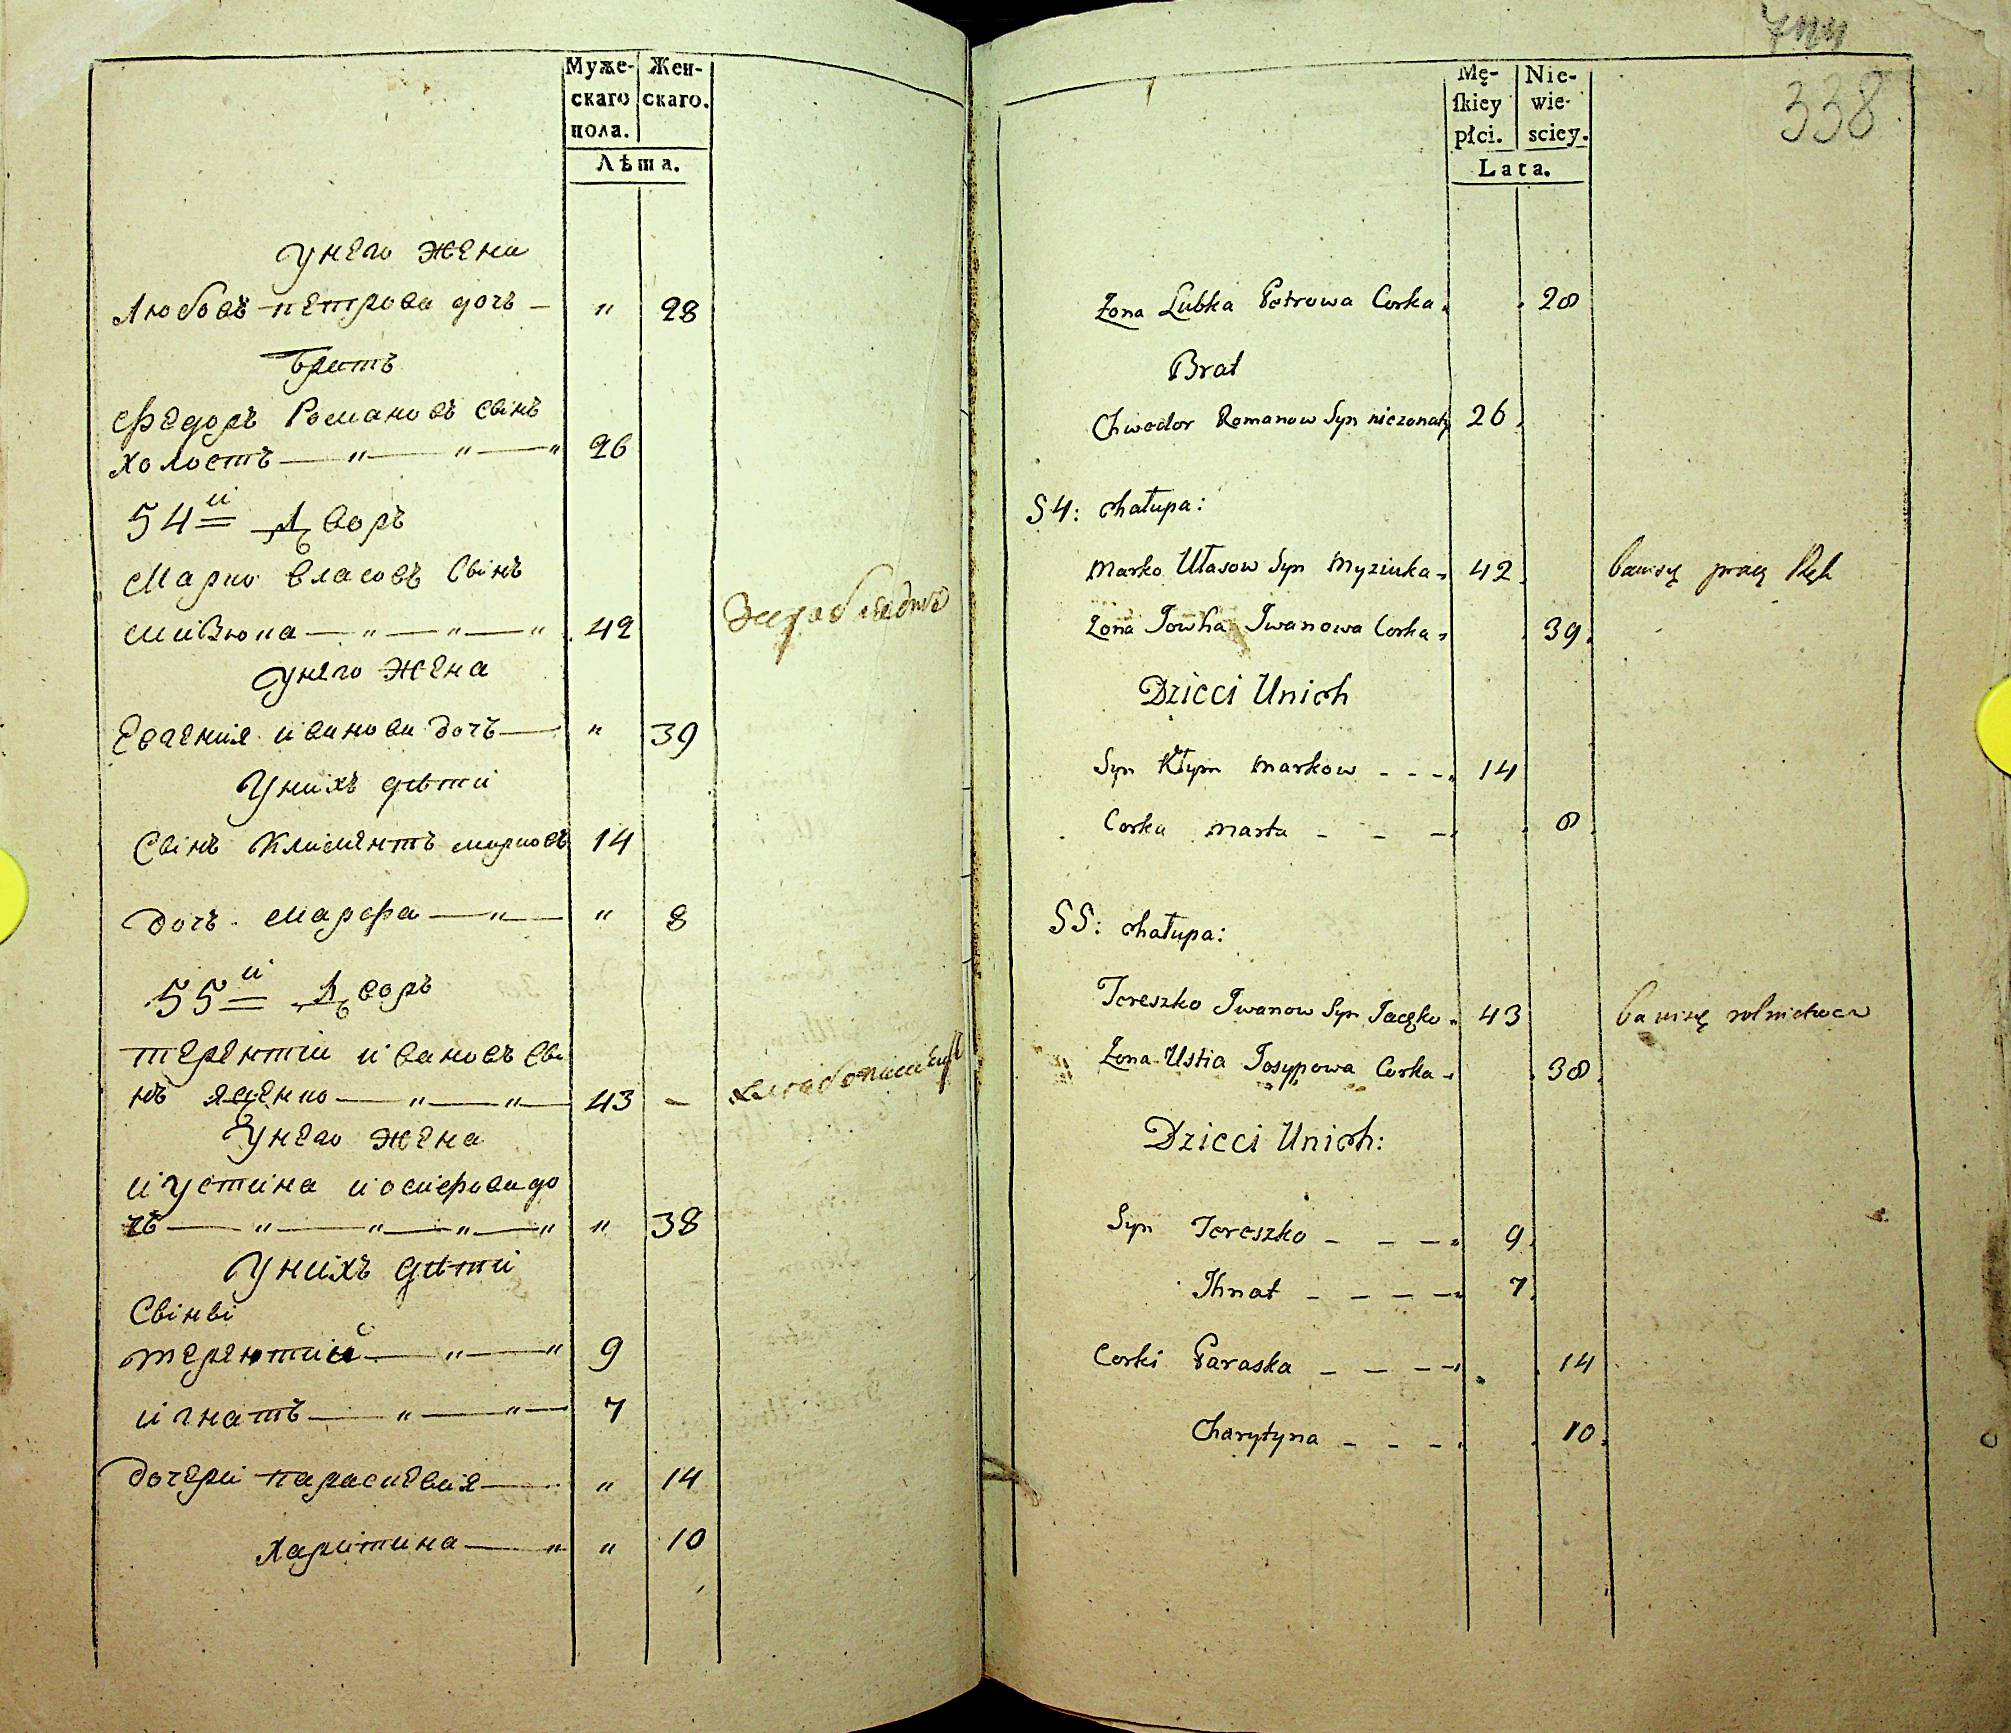 Муже-
скаго
пола.
Жен-
скаго.
Лѣта.
У него жена
Любовъ петрова дочъ — " 28
братъ
Федоръ Романовъ сынъ
холостъ — " — " — " 26
54й Дворъ
Марко власовъ сынъ
мизюка — " — " — " 42
У него жена
Евгения иванова дочъ — " 39
У нихъ дѣти
Сынъ Климентъ марковъ 14
дочъ марфа — " — " 8
55й Дворъ
терентии ивановъ сы
нъ яценко — " — " — 43 —
У него жена
иустина иосифова до
чъ — " — " — " — " " 38
У нихъ дѣти
Сыны
терентии — " — " 9
игнатъ — " — " — 7
дочери параскевия — " 14
харитина — " " 10
744
338
Mę-
skiey
płci.
Nie-
wie-
sciey.
Lata.
Żona Lubka Petrowa Corka 28
Brat
Chwedor Romanow Syn nieżonaty 26
54: chałupa:
Marko Ułasow Syn Myziuka 42 bawisię pracą Rąk
Żona Jowha Iwanowa Corka 39
Dzieci Unich
Syn Kłym Markow - - - 14
Corka Marta - - - 8
55: chałupa:
Tereszko Iwanow Syn Jacęko 43 bawisię rolnictwem
Żona Ustia Josypowa Corka 38
Dzieci Unich:
Syn Tereszko - - - 9
Ihnat - - - - 7
Corki Paraska - - - - 14
Charytyna - - - 10